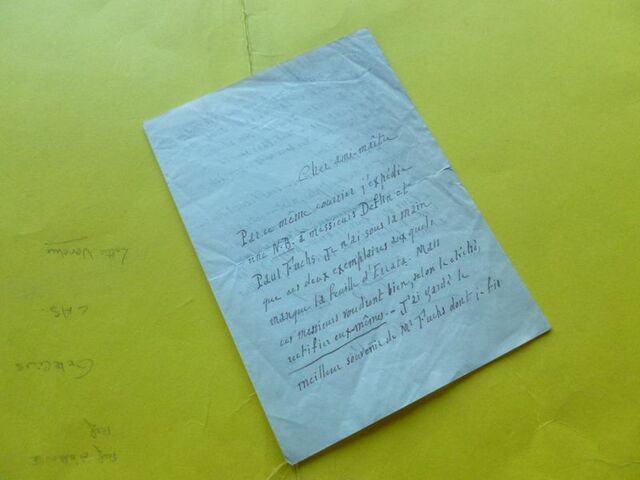 Cher ami-maître
Par ce même courrier j'expédie
une N.B. à messieurs Deflin et
Paul Fuchs. Je n'ai sous la main
que ces deux exemplaires aux quels
manque la feuille d'Errata. Mais
ces messieurs voudront bien, selon le cliché,
rectifier eux-mêmes. – J'ai gardé le
meilleur souvenir de Mr Fuchs dont je fis
LAS